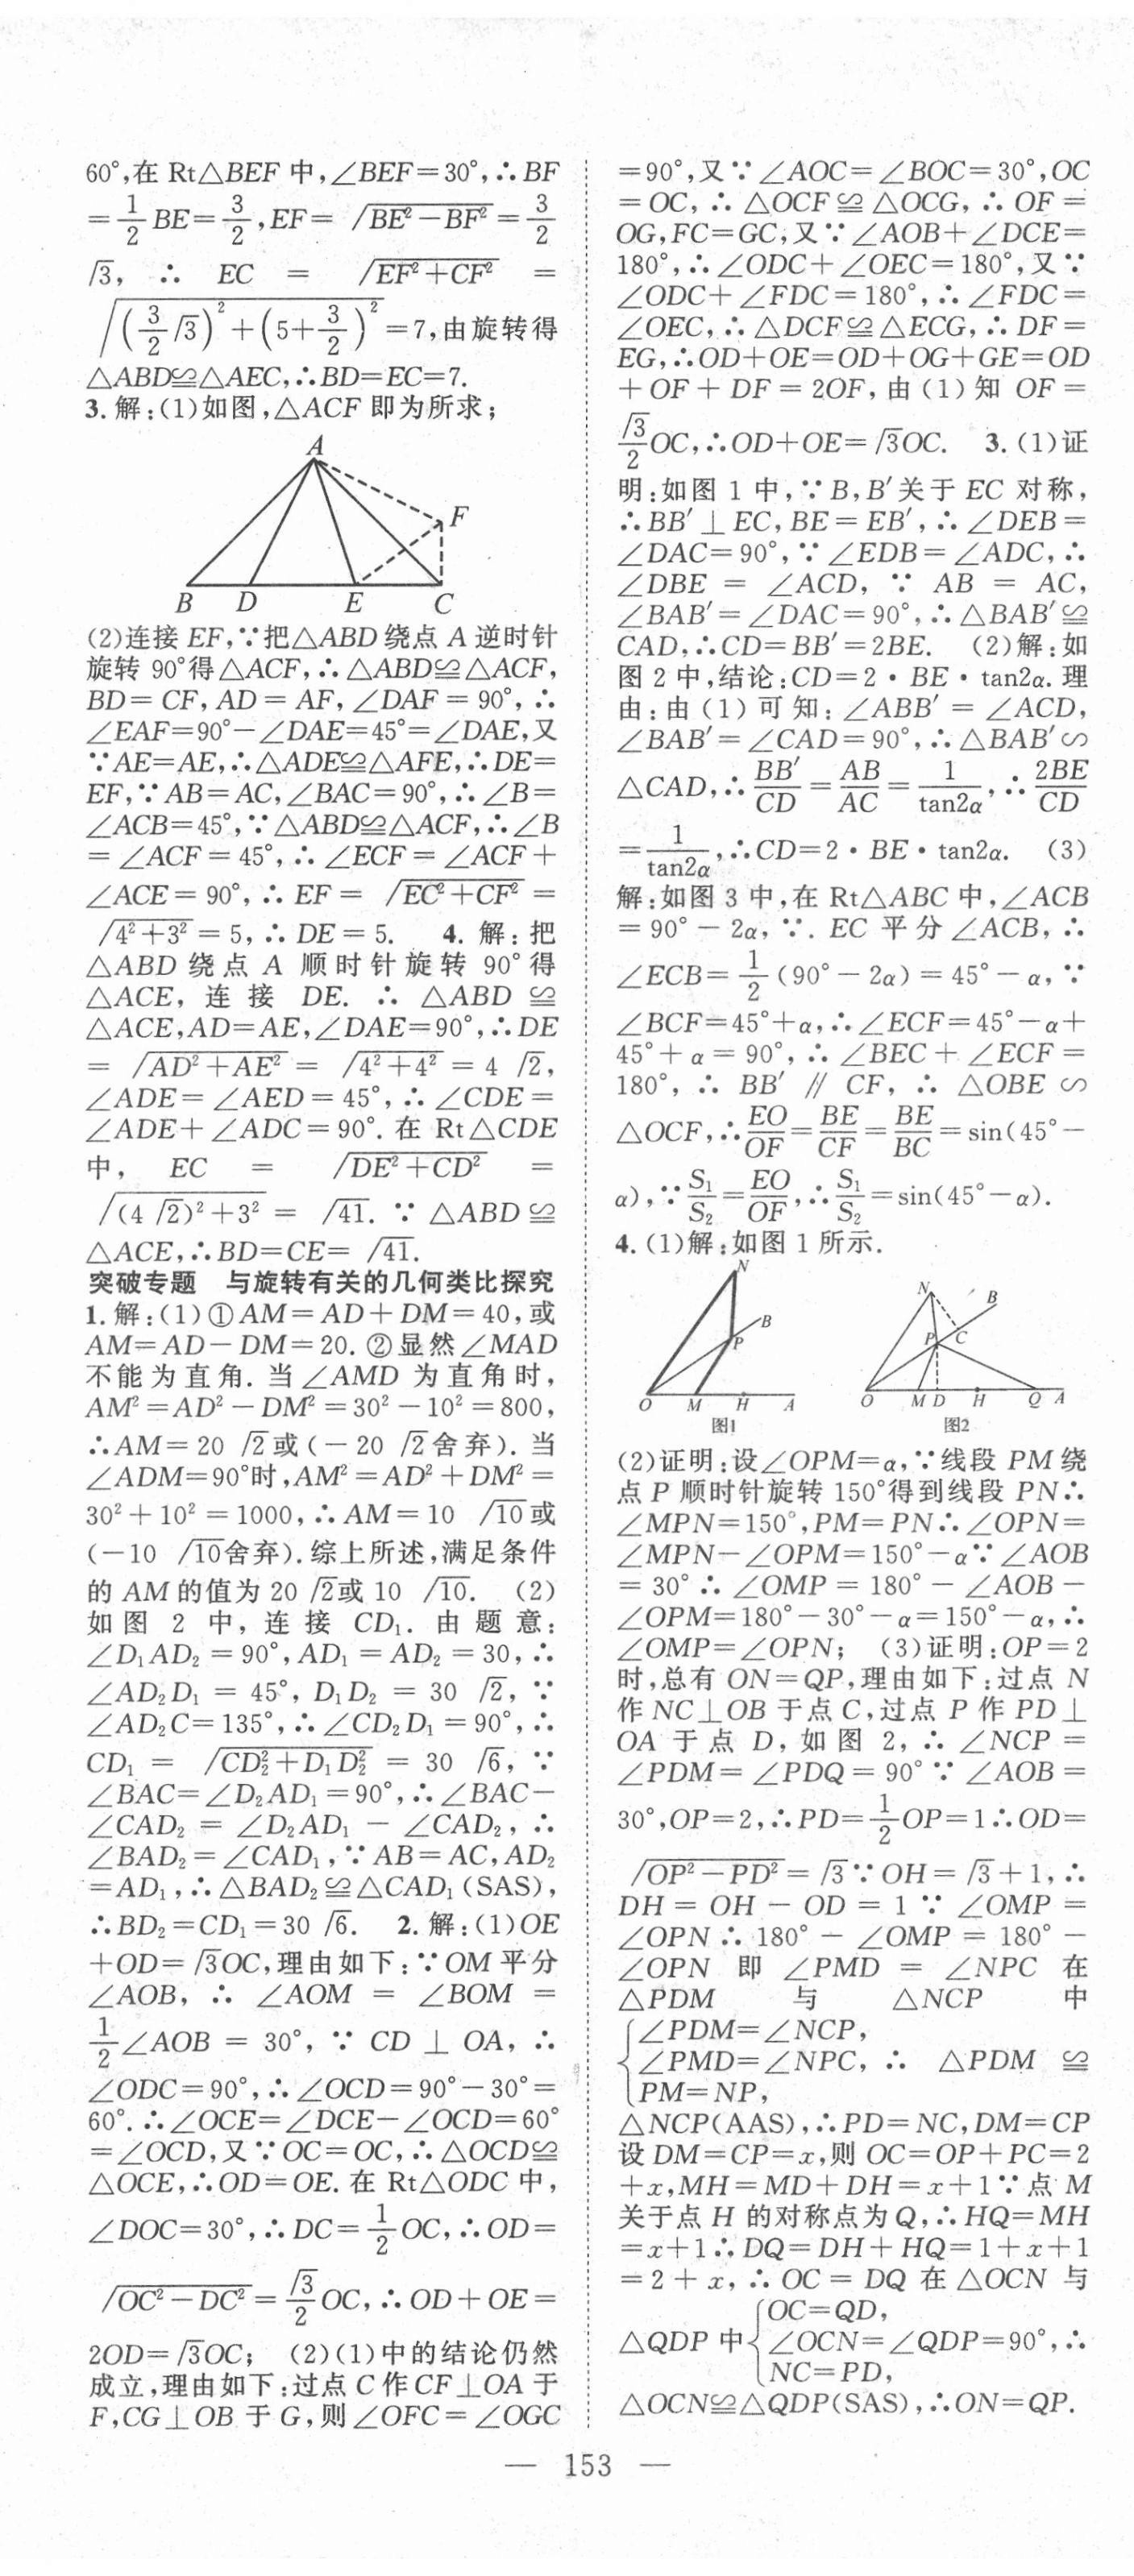 60°,在 Rt△BEF 中,∠BEF=30°,∴BF
=1/2 BE=3/2,EF=√(BE²-BF²)=3/2
√3, ∴ EC = √(EF²+CF²) =
√((3/2 √3)²+(5+3/2)²)=7,由旋转得
△ABD≌△AEC,∴BD=EC=7.
3.解:(1)如图,△ACF 即为所求;
A
F
B D E C
(2)连接 EF,∵把△ABD 绕点 A 逆时针
旋转 90°得△ACF,∴△ABD≌△ACF,
BD=CF,AD=AF,∠DAF=90°,∴
∠EAF=90°-∠DAE=45°=∠DAE,又
∵AE=AE,∴△ADE≌△AFE,∴DE=
EF,∵AB=AC,∠BAC=90°,∴∠B=
∠ACB=45°,∵△ABD≌△ACF,∴∠B
=∠ACF=45°,∴∠ECF=∠ACF+
∠ACE=90°,∴EF=√(EC²+CF²)=
√(4²+3²)=5,∴DE=5. 4.解:把
△ABD 绕点 A 顺时针旋转 90°得
△ACE,连接 DE.∴△ABD≌
△ACE,AD=AE,∠DAE=90°,∴DE
=√(AD²+AE²)=√(4²+4²)=4√2,
∠ADE=∠AED=45°,∴∠CDE=
∠ADE+∠ADC=90°.在 Rt△CDE
中, EC = √(DE²+CD²) =
√((4√2)²+3²)=√41.∵△ABD≌
△ACE,∴BD=CE=√41.
突破专题 与旋转有关的几何类比探究
1.解:(1)①AM=AD+DM=40,或
AM=AD-DM=20.②显然∠MAD
不能为直角.当∠AMD 为直角时,
AM²=AD²-DM²=30²-10²=800,
∴AM=20√2或(-20√2舍弃).当
∠ADM=90°时,AM²=AD²+DM²=
30²+10²=1000,∴AM=10√10或
(-10√10舍弃).综上所述,满足条件
的 AM 的值为 20√2或 10√10. (2)
如图 2 中,连接 CD₁.由题意:
∠D₁AD₂=90°,AD₁=AD₂=30,∴
∠AD₂D₁=45°,D₁D₂=30√2,∵
∠AD₂C=135°,∴∠CD₂D₁=90°,∴
CD₁=√(CD₂²+D₁D₂²)=30√6,∵
∠BAC=∠D₂AD₁=90°,∴∠BAC-
∠CAD₂=∠D₂AD₁-∠CAD₂,∴
∠BAD₂=∠CAD₁,∵AB=AC,AD₂
=AD₁,∴△BAD₂≌△CAD₁(SAS),
∴BD₂=CD₁=30√6. 2.解:(1)OE
+OD=√3OC,理由如下:∵OM 平分
∠AOB,∴∠AOM=∠BOM=
1/2∠AOB=30°,∵CD⊥OA,∴
∠ODC=90°,∴∠OCD=90°-30°=
60°.∴∠OCE=∠DCE-∠OCD=60°
=∠OCD,又∵OC=OC,∴△OCD≌
△OCE,∴OD=OE.在 Rt△ODC 中,
∠DOC=30°,∴DC=1/2 OC,∴OD=
√(OC²-DC²)=√3/2 OC,∴OD+OE=
2OD=√3OC; (2)(1)中的结论仍然
成立,理由如下:过点 C 作 CF⊥OA 于
F,CG⊥OB 于 G,则∠OFC=∠OGC
=90°,又∵∠AOC=∠BOC=30°,OC
=OC,∴△OCF≌△OCG,∴OF=
OG,FC=GC,又∵∠AOB+∠DCE=
180°,∴∠ODC+∠OEC=180°,又∵
∠ODC+∠FDC=180°,∴∠FDC=
∠OEC,∴△DCF≌△ECG,∴DF=
EG,∴OD+OE=OD+OG+GE=OD
+OF+DF=2OF,由(1)知 OF=
√3/2 OC,∴OD+OE=√3OC. 3.(1)证
明:如图 1 中,∵B,B′关于 EC 对称,
∴BB′⊥EC,BE=EB′,∴∠DEB=
∠DAC=90°,∵∠EDB=∠ADC,∴
∠DBE=∠ACD,∵AB=AC,
∠BAB′=∠DAC=90°,∴△BAB′≌
CAD,∴CD=BB′=2BE. (2)解:如
图 2 中,结论:CD=2·BE·tan2α.理
由:由(1)可知:∠ABB′=∠ACD,
∠BAB′=∠CAD=90°,∴△BAB′∽
△CAD,∴BB′/CD=AB/AC=1/tan2α,∴2BE/CD
=1/tan2α,∴CD=2·BE·tan2α. (3)
解:如图 3 中,在 Rt△ABC 中,∠ACB
=90°-2α,∵.EC 平分∠ACB,∴
∠ECB=1/2(90°-2α)=45°-α,∵
∠BCF=45°+α,∴∠ECF=45°-α+
45°+α=90°,∴∠BEC+∠ECF=
180°,∴BB′∥CF,∴△OBE∽
△OCF,∴EO/OF=BE/CF=BE/BC=sin(45°-
α),∵S₁/S₂=EO/OF,∴S₁/S₂=sin(45°-α).
4.(1)解:如图 1 所示.
N
B
P
O M H A
图1
N
B
P C
O M D H Q A
图2
(2)证明:设∠OPM=α,∵线段 PM 绕
点 P 顺时针旋转 150°得到线段 PN∴
∠MPN=150°,PM=PN∴∠OPN=
∠MPN-∠OPM=150°-α∵∠AOB
=30°∴∠OMP=180°-∠AOB-
∠OPM=180°-30°-α=150°-α,∴
∠OMP=∠OPN; (3)证明:OP=2
时,总有 ON=QP,理由如下:过点 N
作 NC⊥OB 于点 C,过点 P 作 PD⊥
OA 于点 D,如图 2,∴∠NCP=
∠PDM=∠PDQ=90°∵∠AOB=
30°,OP=2,∴PD=1/2 OP=1∴OD=
√(OP²-PD²)=√3∵OH=√3+1,∴
DH=OH-OD=1∵∠OMP=
∠OPN∴180°-∠OMP=180°-
∠OPN 即∠PMD=∠NPC 在
△PDM 与 △NCP 中
{∠PDM=∠NCP,
∠PMD=∠NPC, ∴ △PDM ≌
PM=NP,
△NCP(AAS),∴PD=NC,DM=CP
设 DM=CP=x,则 OC=OP+PC=2
+x,MH=MD+DH=x+1∵点 M
关于点 H 的对称点为 Q,∴HQ=MH
=x+1∴DQ=DH+HQ=1+x+1
=2+x,∴OC=DQ 在△OCN 与
{OC=QD,
△QDP 中 ∠OCN=∠QDP=90°,∴
NC=PD,
△OCN≌△QDP(SAS),∴ON=QP.
— 153 —